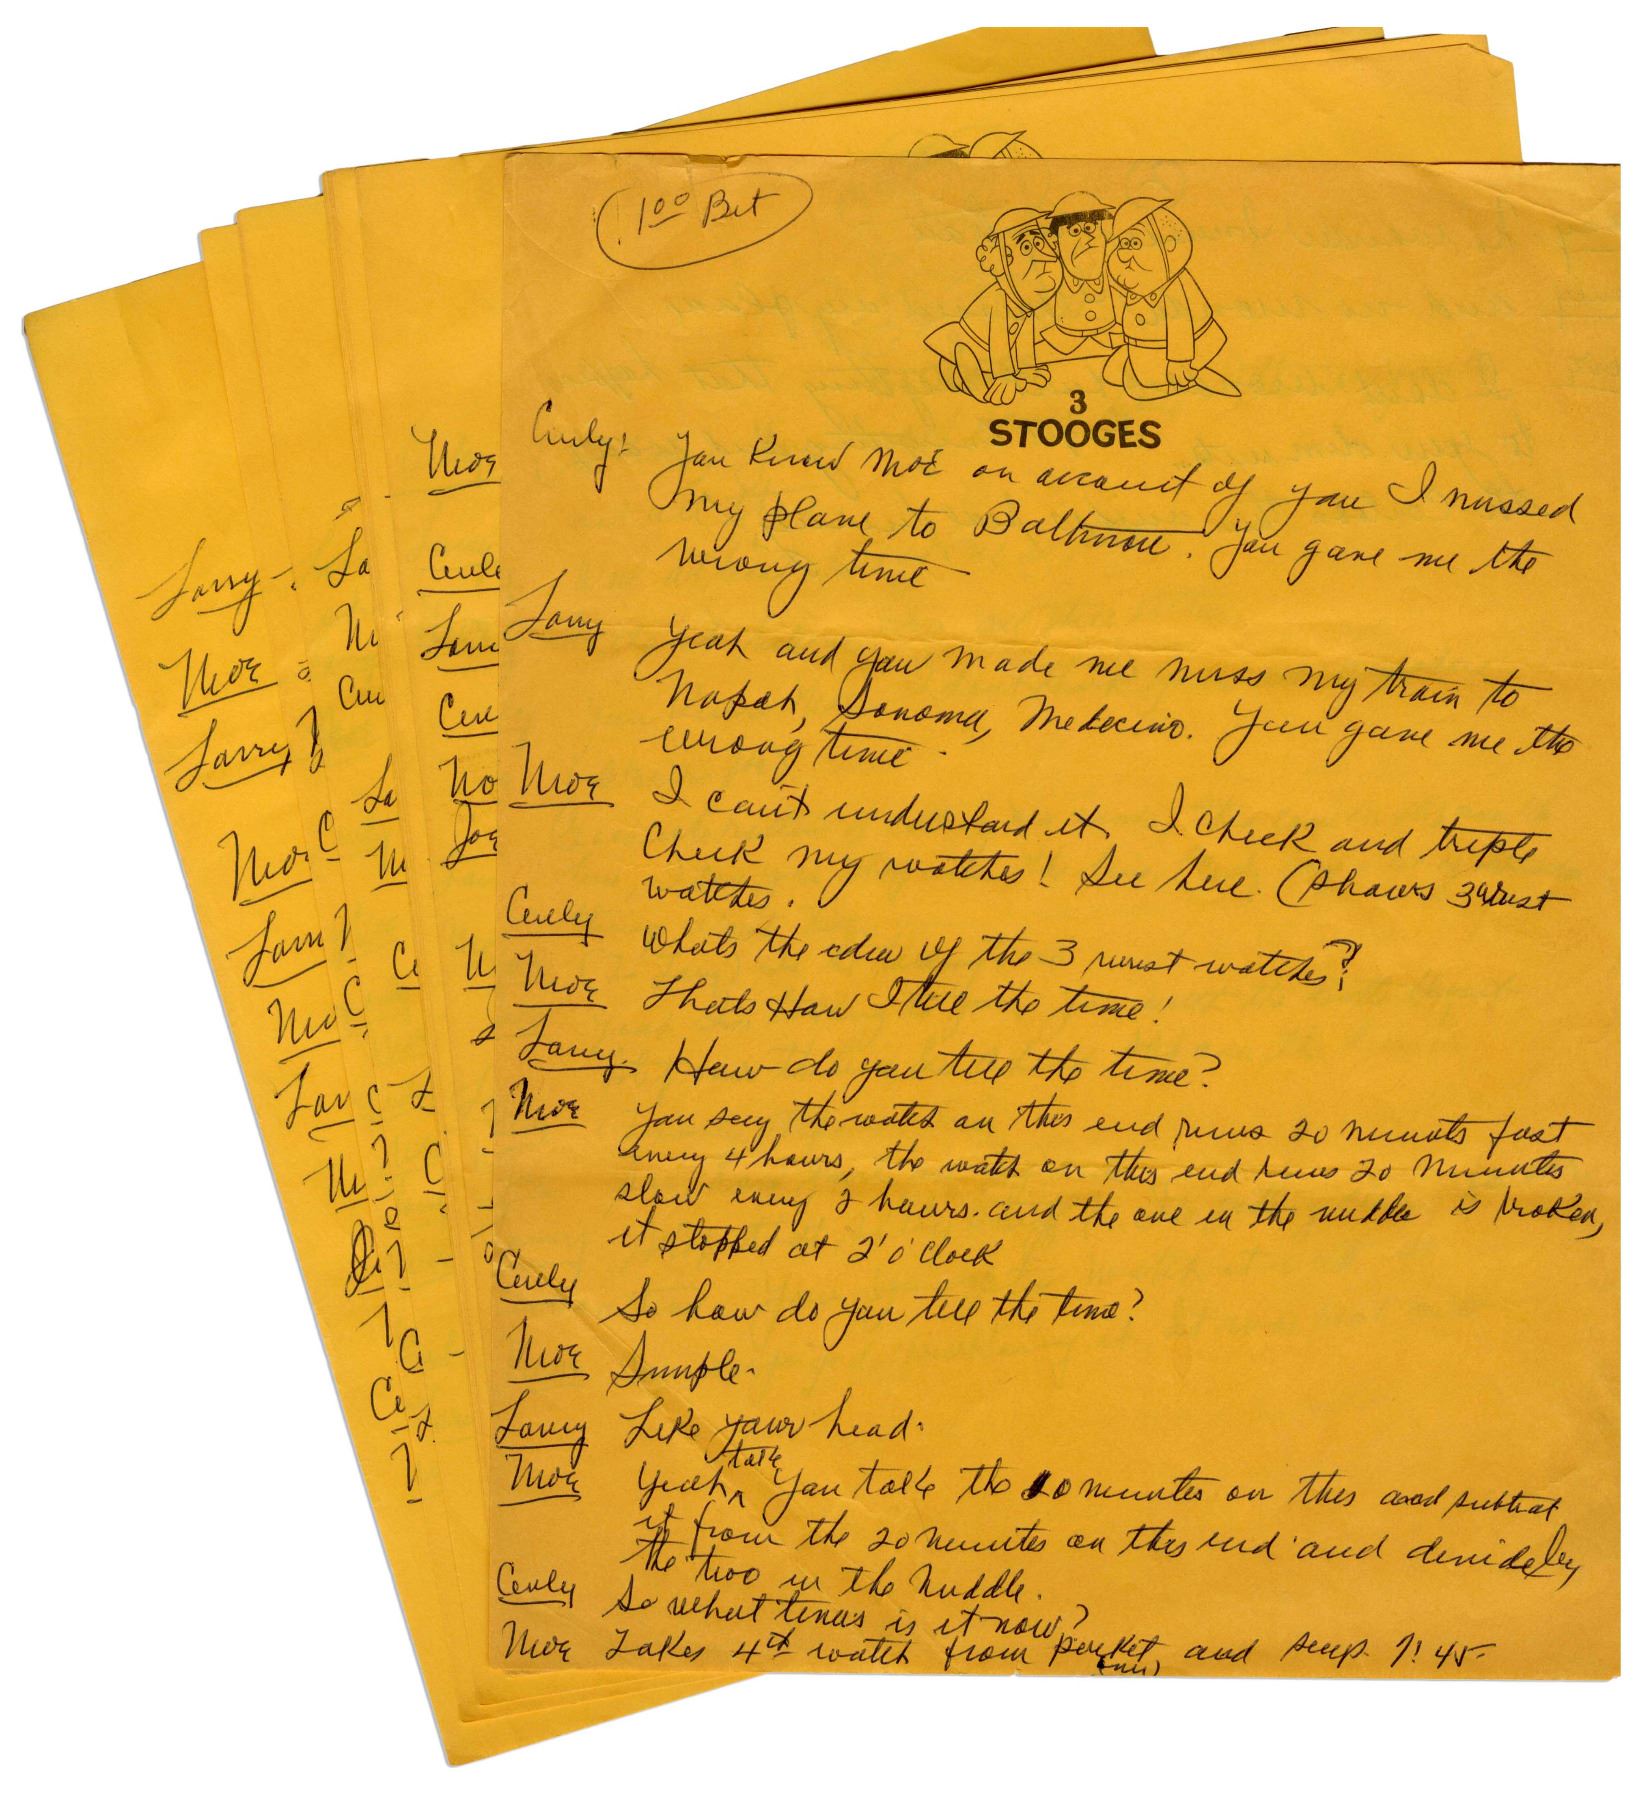 1 00 Bet
3
STOOGES
Curly: You Know Moe on account of you I missed
my plane to Baltimore. You gave me the
wrong time
Larry Yeah and you made me miss my train to
Napah, Sonoma, Medecino. You gave me the
wrong time.
Moe I can't understand it. I check and triple
Check my watches! See here. (Shows 3 wrist
watches.
Curly Whats the idea of the 3 wrist watches?
Moe Thats How I tell the time!
Larry. How do you tell the time?
Moe You see the watch on this end runs 20 minuts fast
every 4 hours, the watch on this end runs 20 minutes
slow every 2 hours. and the one in the middle is broken,
it stopped at 2 o'clock
Curly So how do you tell the time?
Moe Simple.
Larry Like your head.
Moe Yeah, You take the 10 minutes on this and subtrat
it from the 20 minutes on this end and devide by
the two in the Middle.
Curly So what time is it now?
Moe Takes 4th watch from pocket and says. 7:45
Moe
Curly
Larry
Larry
Moe
Larry